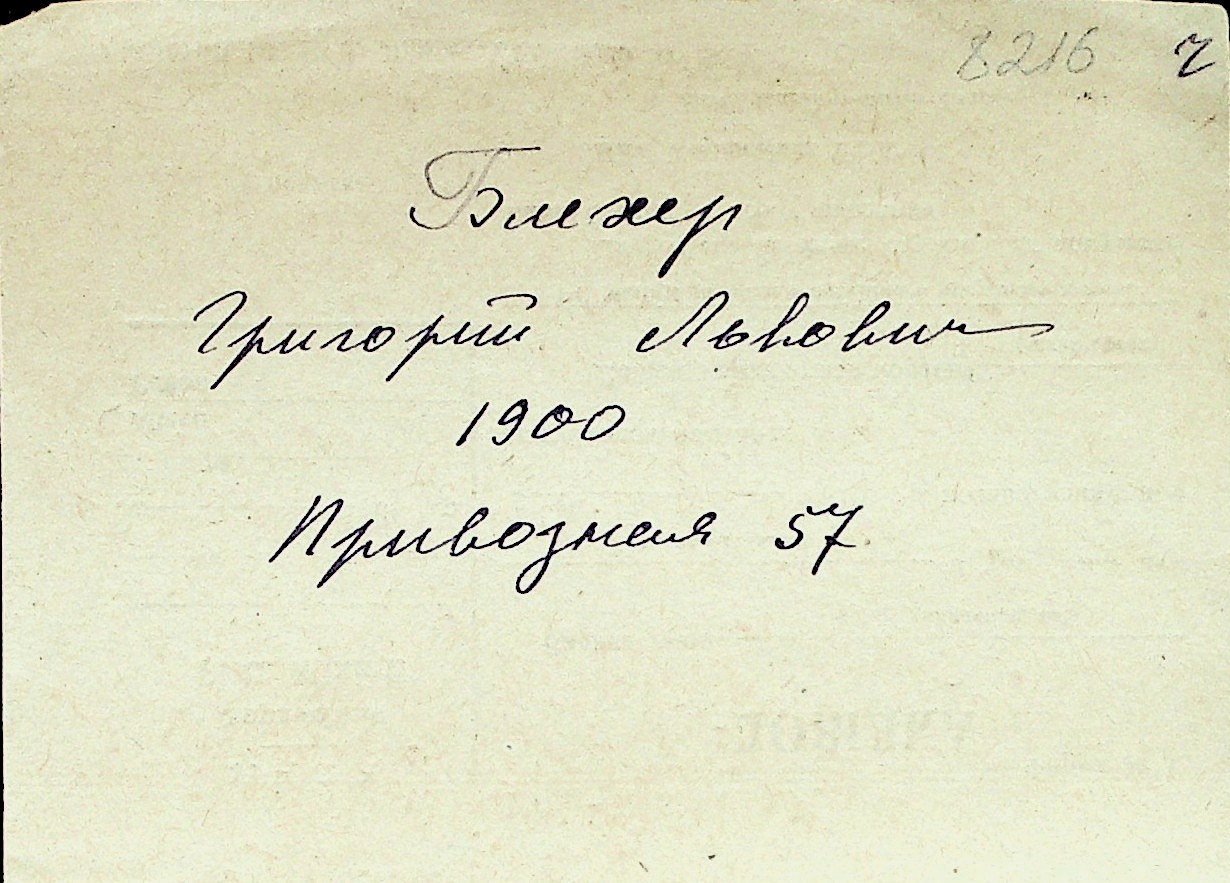 8216 ч
Блехер
Григорий Львович
1900
Привозная 57